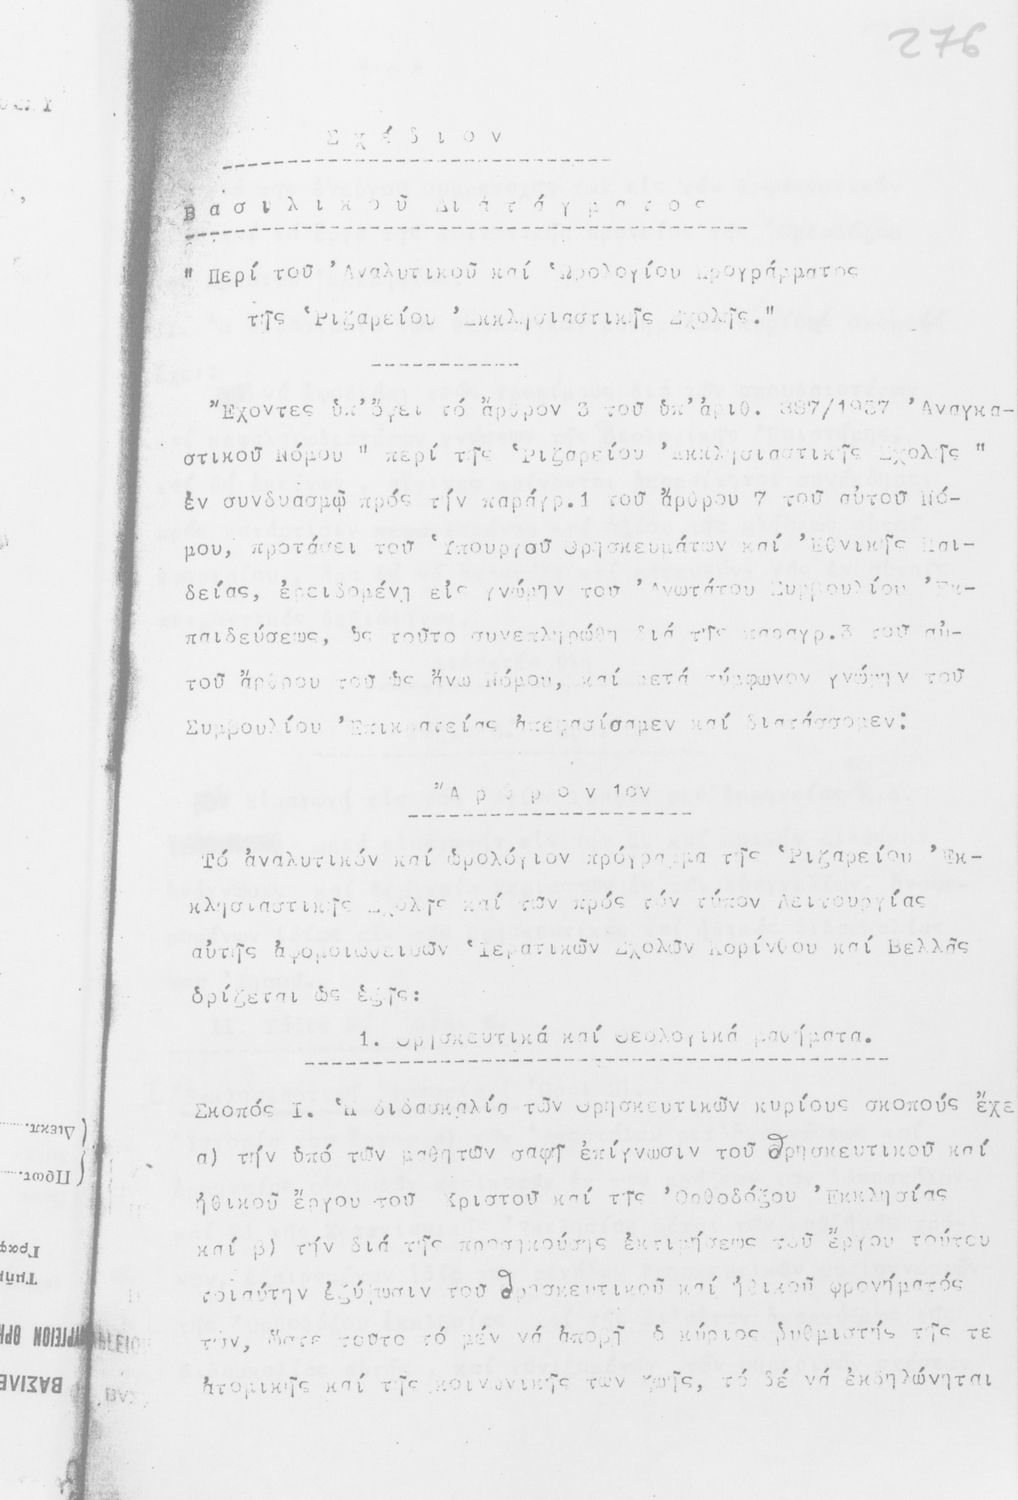 276
Σχέδιον
Βασιλικοῦ Διατάγματος
" Περί τοῦ Ἀναλυτικοῦ καί Ὡρολογίου Προγράμματος
τῆς Ῥιζαρείου Ἐκκλησιαστικῆς Σχολῆς."
Ἔχοντες ὑπ'ὄψει τό ἄρθρον 3 τοῦ ὑπ'ἀριθ. 887/1937 Ἀναγκα-
στικοῦ Νόμου " περί τῆς Ῥιζαρείου Ἐκκλησιαστικῆς Σχολῆς "
ἐν συνδυασμῷ πρός τήν παράγρ.1 τοῦ ἄρθρου 7 τοῦ αὐτοῦ Νό-
μου, προτάσει τοῦ Ὑπουργοῦ Θρησκευμάτων καί Ἐθνικῆς Παι-
δείας, ἐρειδομένῃ εἰς γνώμην τοῦ Ἀνωτάτου Συμβουλίου Ἐκ-
παιδεύσεως, ὡς τοῦτο συνεπληρώθη διά τῆς παραγρ.3 τοῦ αὐ-
τοῦ ἄρθρου τοῦ ὡς ἄνω Νόμου, καί μετά σύμφωνον γνώμην τοῦ
Συμβουλίου Ἐπικρατείας ἀπεφασίσαμεν καί διατάσσομεν:
Ἄρθρον 1ον
Τό ἀναλυτικόν καί ὡρολόγιον πρόγραμμα τῆς Ῥιζαρείου Ἐκ-
κλησιαστικῆς Σχολῆς καί τῶν πρός τόν τύπον λειτουργίας
αὐτῆς ἀφομοιωθεισῶν Ἱερατικῶν Σχολῶν Κορίνθου καί Βελλᾶς
ὁρίζεται ὡς ἑξῆς:
1. Θρησκευτικά καί Θεολογικά μαθήματα.
Σκοπός Ι. Ἡ διδασκαλία τῶν Θρησκευτικῶν κυρίους σκοπούς ἔχε
α) τήν ὑπό τῶν μαθητῶν σαφῆ ἐπίγνωσιν τοῦ θρησκευτικοῦ καί
ἠθικοῦ ἔργου τοῦ Χριστοῦ καί τῆς Ὀρθοδόξου Ἐκκλησίας
καί β) τήν διά τῆς προσηκούσης ἐκτιμήσεως τοῦ ἔργου τούτου
τοιαύτην ἐξύψωσιν τοῦ θρησκευτικοῦ καί ἠθικοῦ φρονήματός
των, ὥστε τοῦτο τό μέν νά ἀποβῇ ὁ κύριος ῥυθμιστής τῆς τε
ἀτομικῆς καί τῆς κοινωνικῆς των ζωῆς, τό δέ νά ἐκδηλώνηται
Διεκπ.
Πρωτ.
Γραφ
Τμῆμ
ΒΑΣΙΛΕ